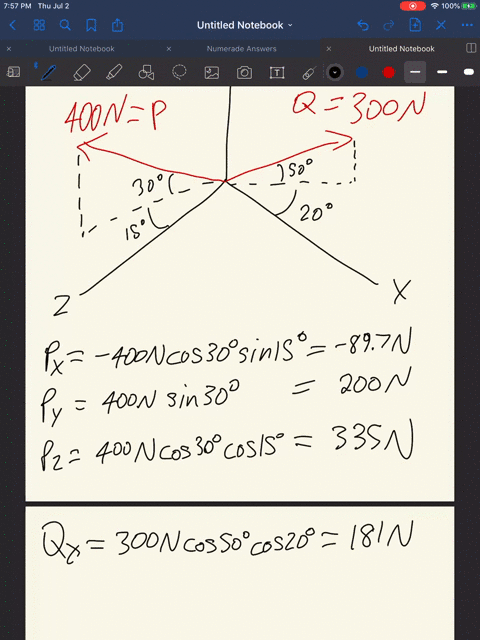 7:57 PM Thu Jul 2 100%
Untitled Notebook
Untitled Notebook Numerade Answers Untitled Notebook
400N=P Q=300N
30° 50°
15° 20°
Z X
Px = -400Ncos30°sin15° = -89.7N
Py = 400N sin30° = 200N
Pz = 400Ncos30°cos15° = 335N
Qx = 300Ncos50°cos20° = 181N